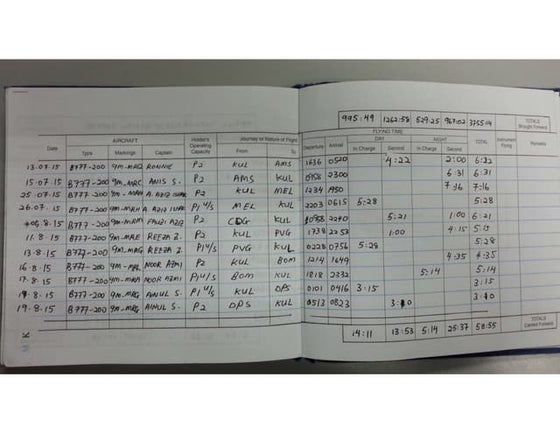 995:49 1262:58 529:25 967:02 3755:14 TOTALS Brought Forward
AIRCRAFT Holder's Operating Capacity Journey or Nature of Flight FLYING TIME
DAY NIGHT TOTAL Instrument Flying Remarks
Date Type Markings Captain From To Departure Arrival In Charge Second In Charge Second
13.07.15 B777-200 9M-MRG RONNIE P2 KUL AMS 1636 0520 4:22 2:00 6:22
15.07.15 B777-200 9M-MRC ANIS S. P2 AMS KUL 0958 2300 6:31 6:31
25.07.15 B777-200 9M-MRH A. AZIZ P2 KUL MEL 1234 1950 7:16
26.07.15 B777-200 9M-MRH A. AZIZ P1 u/s MEL KUL 2203 0615 5:28 5:28
06.8.15 B777-200 9M-MRM AZIZ P2 CDG KUL 2240 5:21 1:00 6:21
11.8.15 B777-200 9M-MRG REEZA Z. P2 KUL PVG 1738 2253 1:00 4:15
13.8.15 B777-200 9M-MRG REEZA Z. P1 u/s PVG KUL 0228 0756 5:28 5:28
16.8.15 B777-200 NOOR AZMI P2 KUL BOM 1214 1649 4:35 4:35
17.8.15 B777-200 9M-MRA NOOR AZMI P1 u/s BOM KUL 1818 2332 5:14 5:14
19.8.15 B777-200 9M-MRG AINUL S. P1 u/s KUL DPS 0101 0416 3:15 3:15
19.8.15 B777-200 9M-MRG AINUL S. P2 DPS KUL 0513 0823 3:10 3:10
14:11 13:53 5:14 25:37 58:55 TOTALS Carried Forward